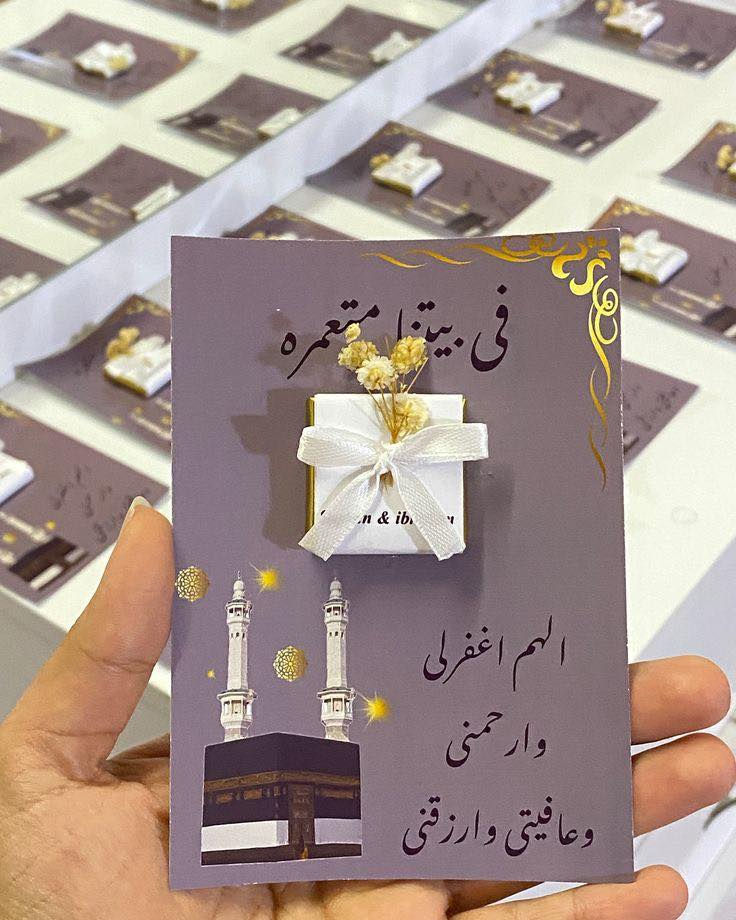 في بيتنا متعمره
& ib
الهم اغفرلي
وارحمني
وعافيتي وارزقني